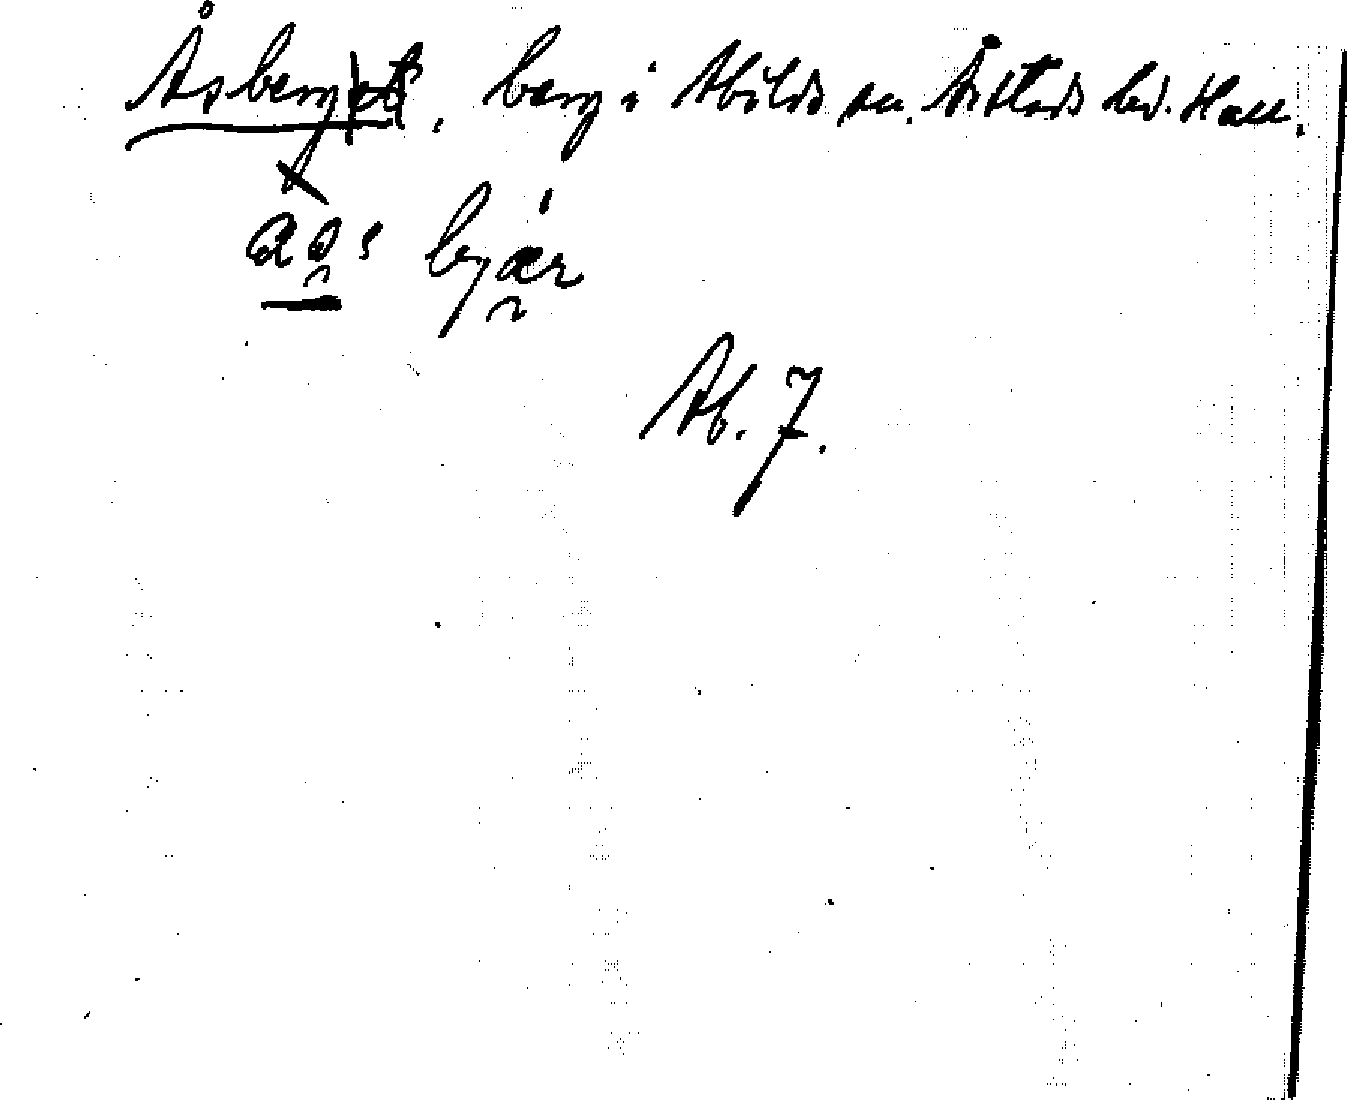 Åsberg|et, berg i Abilds sn. Årstads hd. Hall.
bjær
Ab. 7.